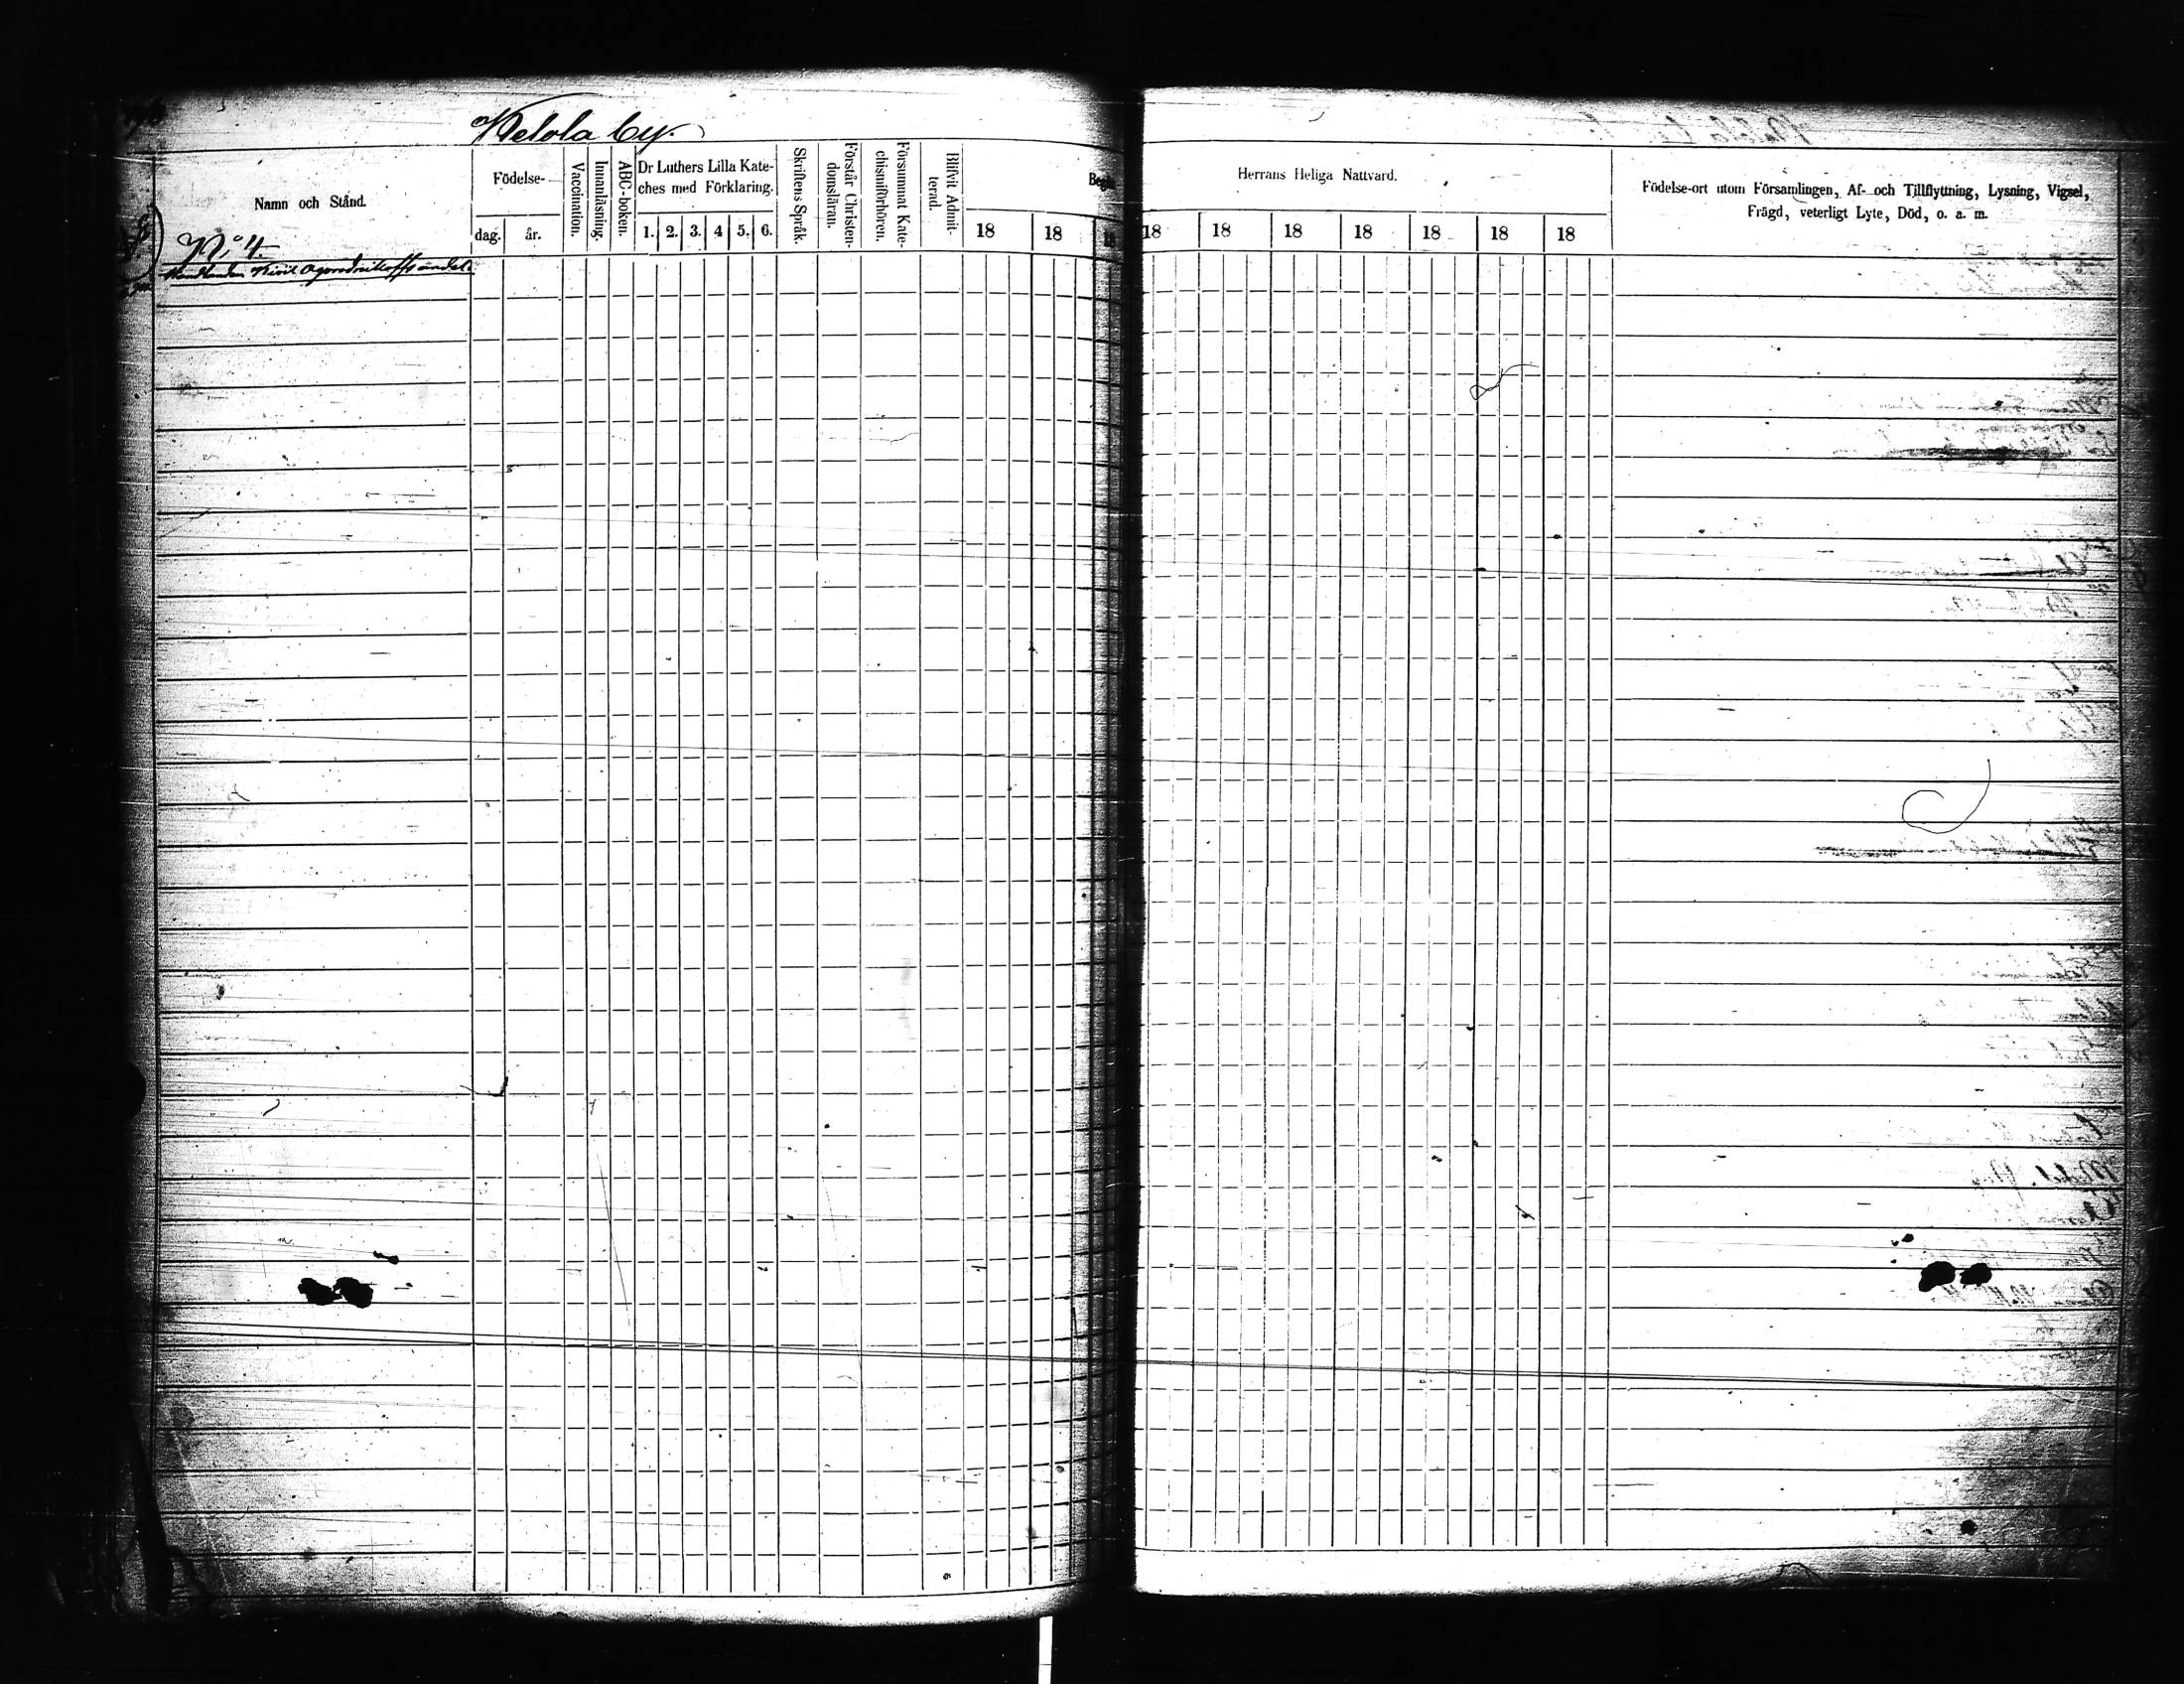 Kelola by.
Namn och Stånd.
Födelse-
dag.
år.
Vaccination.
Innanläsning.
ABC-boken.
Dr Luthers Lilla Kate-
ches med Förklaring.
1. 2. 3. 4 5. 6.
Skriftens Språk.
Förstår Christen-
domsläran.
Försummat Kate-
chismiförhören.
Blifvit Admit-
terad.
18 18 18
Herrans Heliga Nattvard.
18 18 18 18 18 18 18
Födelse-ort utom Församlingen, Af- och Tillflyttning, Lysning, Vigsel,
Frägd, veterligt Lyte, Död, o. a. m.
N:o 4.
Handlanden